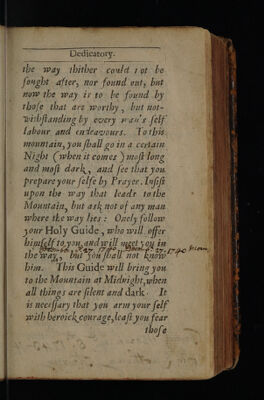 Dedicatory.
the way thither could not be
ſought after, nor found out, but
now the way is to be found by
thoſe that are worthy, but not-
withſtanding by every man's ſelf
labour and endeavours. To this
mountain, you ſhall go in a certain
Night (when it comes) moſt long
and moſt dark, and ſee that you
prepare your ſelfe by Prayer. Inſiſt
upon the way that leads to the
Mountain, but ask not of any man
where the way lies: Onely follow
your Holy Guide, who will offer
himſelf to you, and will meet you in
the way, but you ſhall not know
him. This Guide will bring you
to the Mountain at Midnight, when
all things are ſilent and dark. It
is neceſſary that you arm your ſelf
with heroick courage, leaſt you fear
thoſe